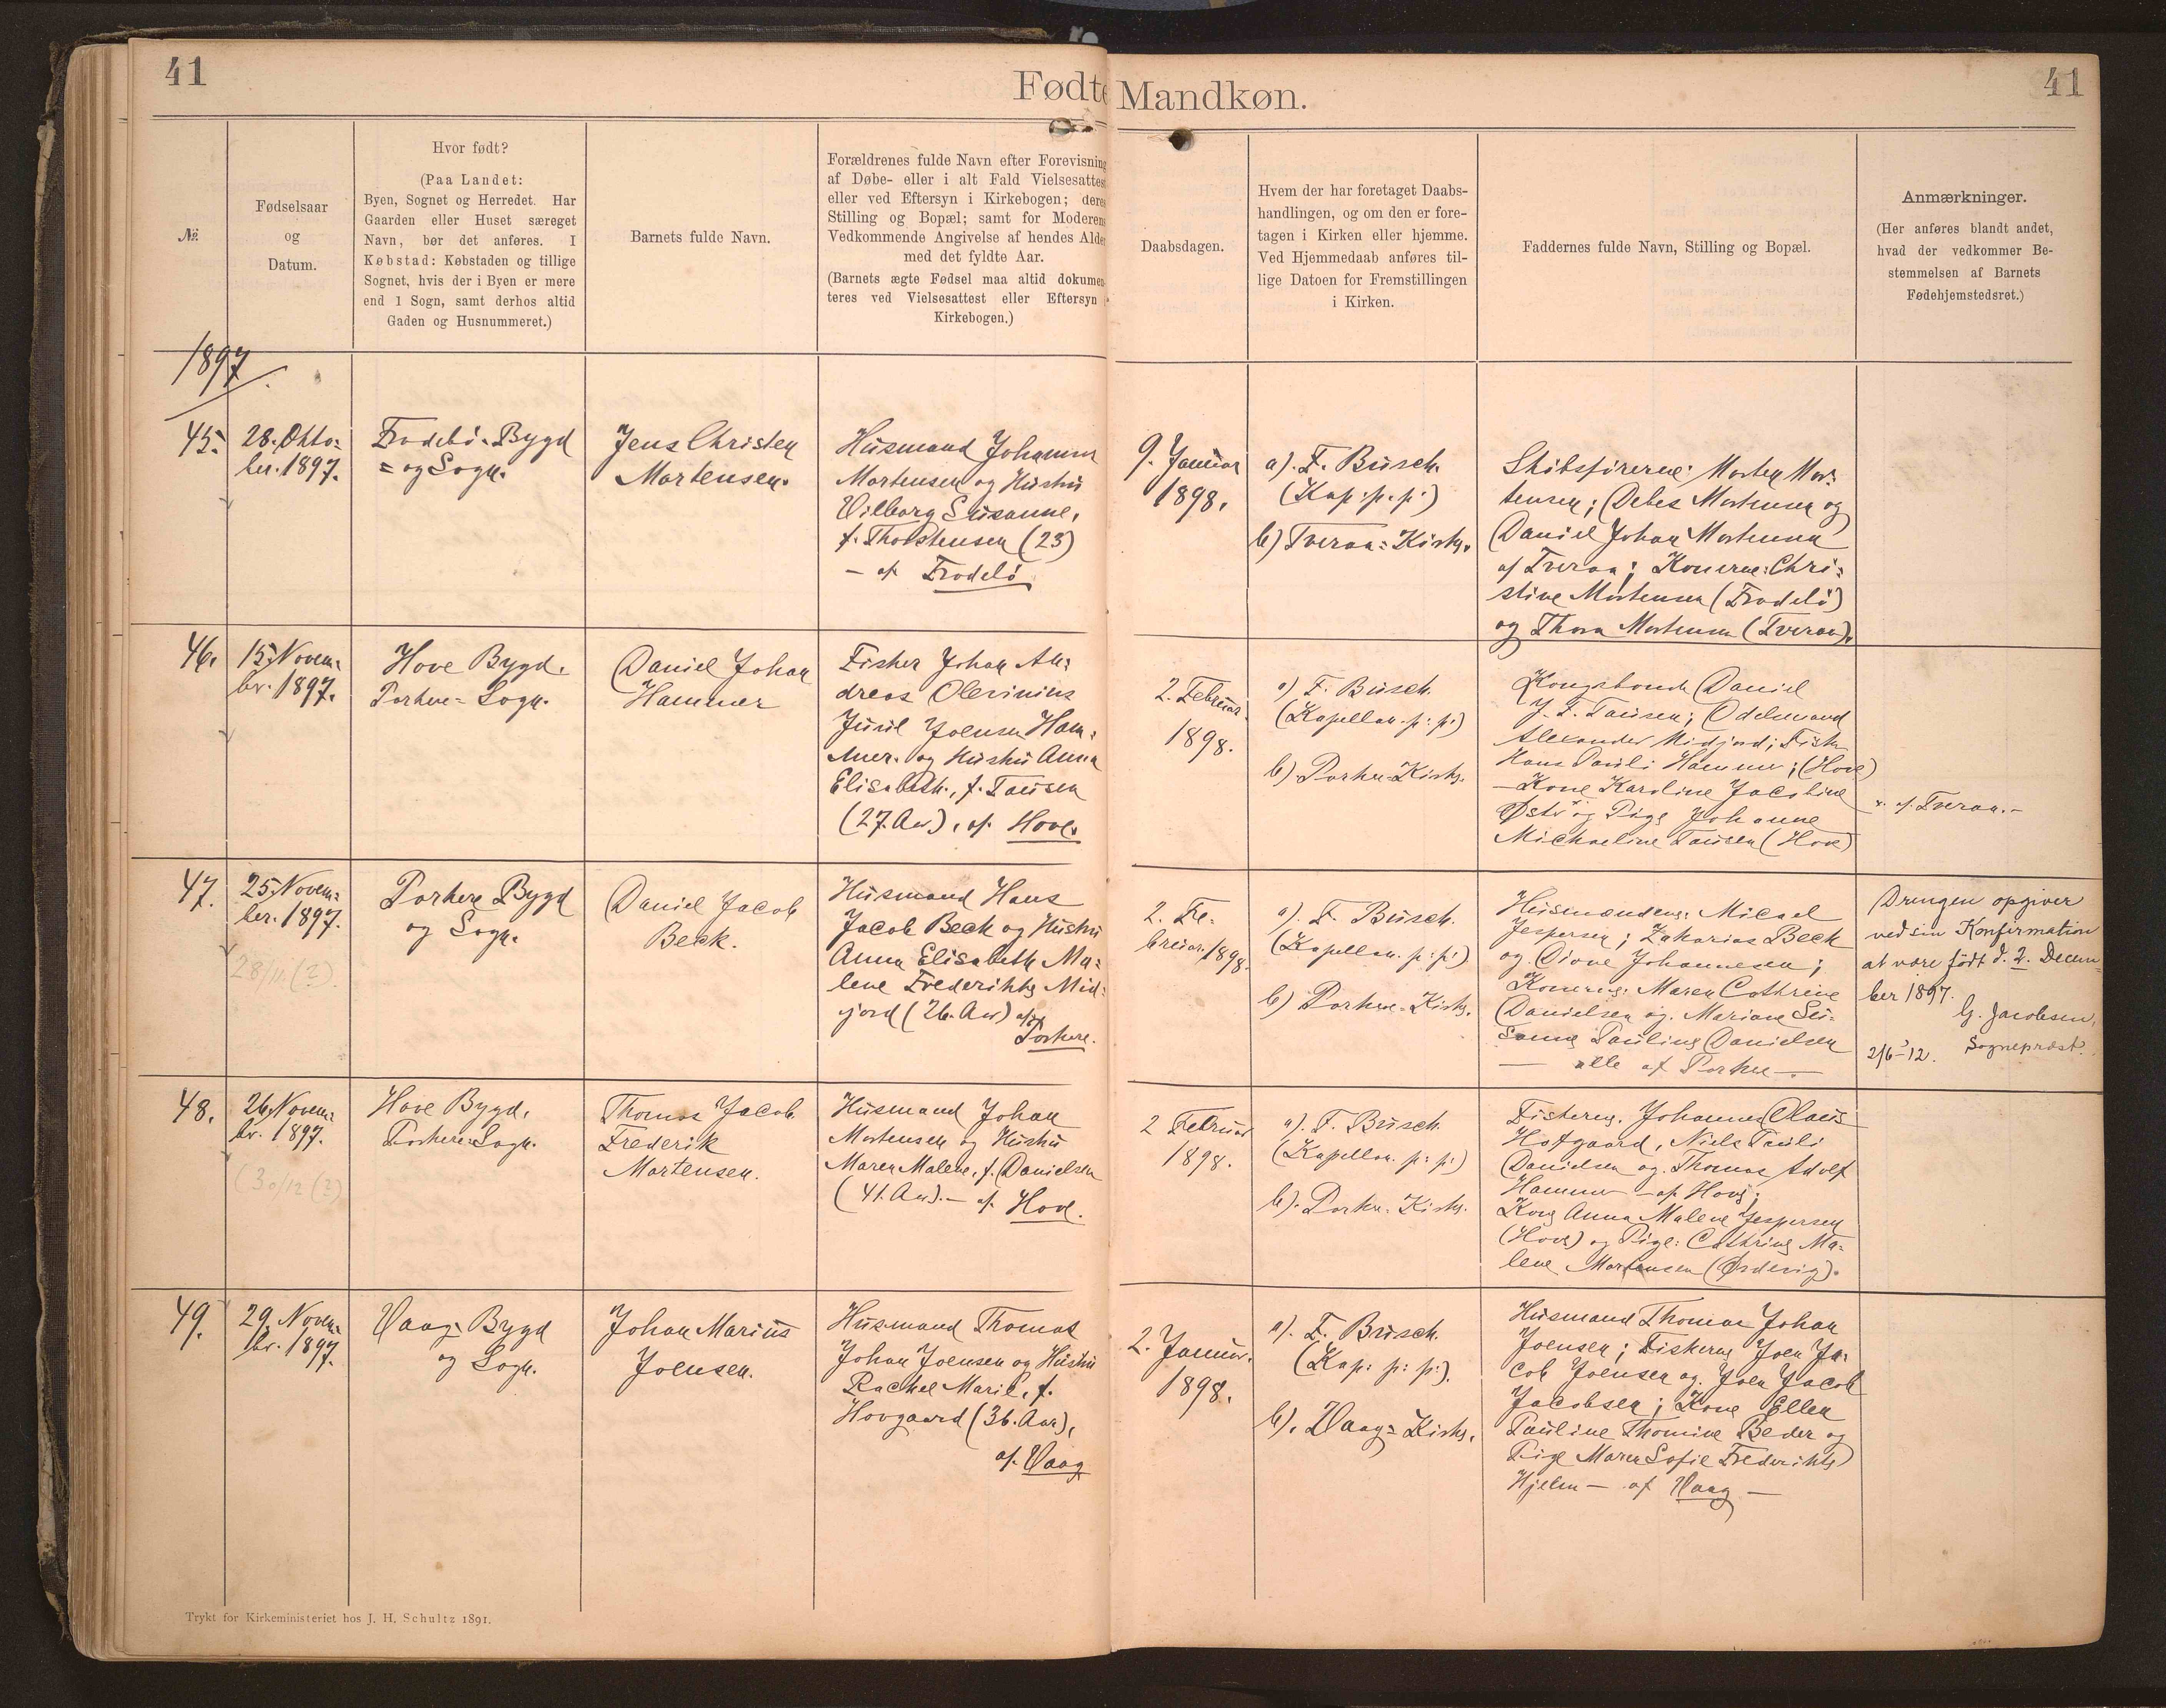 41
Fødte
Mandkøn.
41
№
Fødselsaar
og
Datum.
Hvor født?
(Paa Landet:
Byen, Sognet og Herredet. Har
Gaarden eller Huset særeget
Navn, bør det anføres. I
Købstad: Købstaden og tillige
Sognet, hvis der i Byen er mere
end 1 Sogn, samt derhos altid
Gaden og Husnummeret.)
Barnets fulde Navn.
Forældrenes fulde Navn efter Forevisning
af Døbe- eller i alt Fald Vielsesattest
eller ved Eftersyn i Kirkebogen; deres
Stilling og Bopæl; samt for Moderens
Vedkommende Angivelse af hendes Alder
med det fyldte Aar.
(Barnets ægte Fødsel maa altid dokumen-
teres ved Vielsesattest eller Eftersyn i
Kirkebogen.)
Daabsdagen.
Hvem der har foretaget Daabs-
handlingen, og om den er fore-
tagen i Kirken eller hjemme.
Ved Hjemmedaab anføres til-
lige Datoen for Fremstillingen
i Kirken.
Faddernes fulde Navn, Stilling og Bopæl.
Anmærkninger.
(Her anføres blandt andet,
hvad der vedkommer Be-
stemmelsen af Barnets
Fødehjemstedsret.)
1897
45.
28. Okto=
ber. 1897.
Frodebö=Bygd
= og Sogn.
Jens Christen
Mortensen.
Husmand Johannes
Mortensen og Hustru
Vilborg Susanne,
f. Thorstensen (23)
- af Frodebö
9. Januar
1898.
a). F. Busch.
(Kap: p: p:)
b) Tveraa=Kirke.
Skibsförerne: Morten Mor=
tensen; Debes Mortensen og
Daniel Johan Mortensen
af Tveraa; Konerne: Chri=
stine Mortensen (Frodebö)
og Thora Mortensen (Tveraa).
46.
15. Novem=
br. 1897.
Hove Bygd.
Porkere=Sogn.
Daniel Johan
Hammer
Fisker Johan An=
dreas Olevinius
Juul Joensen Ham=
mer. og Hustru Anna
Elisabeth., f. Tausen
(27. Aar), af Hove.
2. Februar.
1898.
a) F. Busch.
(Kapellan. p: p:)
b) Porkere=Kirke.
Kongsbonde Daniel
J. F. Tausen; Odelsmand
Alexander Midjord; Fisker
Hans Pauli Hammer; (Hove)
- Kone Karoline Jacobine
Øströ og Pige Johanne
Michaeline Tausen (Hove)
x. af. Tveraa.-
47.
25. Novem=
ber. 1897.
28/11. (?).
Porkere Bygd
og Sogn.
Daniel Jacob
Beck.
Husmand Hans
Jacob Beck og Hustru
Anna Elisabeth Ma=
lene Frederikke Mid=
jord (26. Aar) af
Porkere.
2. Fe=
bruar. 1898.
a). F. Busch.
(Kapellan. p: p:)
b) Porkere=Kirke.
Husmændene: Micael
Jespersen; Zakarias Beck
og Johannesen;
Konerne: Maren Cathrine
Danielsen og. Mariane Su=
sanne Pauline Danielsen
- alle af Porkere -.
Drengen opgiver
ved sin Konfirmation
at være født d. 2. Decem=
ber 1897.
G. Jacobsen,
2/6-12. Sognepræst.
48.
26. Novem=
br. 1897.
(30/12 (?)
Hove Bygd.
Porkere=Sogn.
Thomas Jacob
Frederik
Mortensen.
Husmand Johan
Mortensen og Hustru
Maren Malene, f. Danielsen
(41. Aar).- af Hove.
2 Februar
1898.
a). F. Busch.
(Kapellan. p: p:)
b). Porkere. Kirke.
Fiskerne. Johannes Claus
Hofgaard, Niels Pauli
Danielsen og. Thomas Adolf
Hammer - af Hove;
Kone Anna Malene Jespersen
(Hove) og Pige: Cathrine Ma=
lene Mortensen (Ørdevig).
49.
29. Novem=
br. 1897.
Vaag=Bygd
og Sogn.
Johan Marius
Joensen.
Husmand Thomas
Johan Joensen og Hustru
Rachel Marie, f.
Hovgaard (36. Aar),
af. Vaag
2. Januar.
1898.
a). F. Busch.
(Kap: p: p:).
b). Vaag=Kirke.
Husmand Thomas Johan
Joensen; Fiskerne Joen Ja=
cob Joensen og. Joen Jacob
Jacobsen; Kone Ellen
Pauline Thomine Beder og
Pige Maren Sofie Frederikke
Hjelm - af Vaag -
Trykt for Kirkeministeriet hos J. H. Schultz 1891.